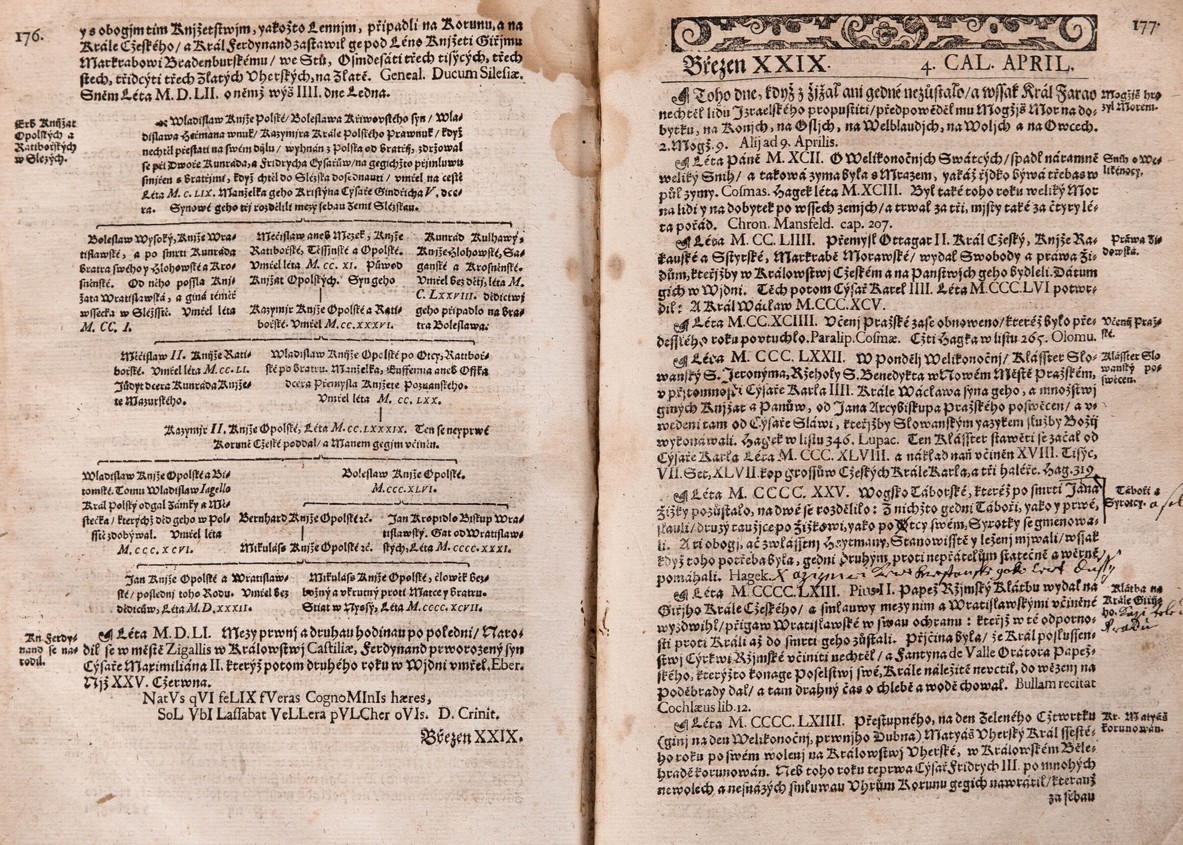 176.
y s obogjm tim Knjžetstwjm, yakožto Lennjm, připadli na Korunu, a na
Krále Cžeského / a Král Ferdynand zastawil ge pod Léno Knjžeti Giřjmu
Markrabowi Bradenburskému / we Stů, Osmdesáti třech tisýcých, třech
stech, třidcýti třech Zlatých Vherských, na Zlatě. Geneal. Ducum Silesiæ.
Sněm Léta M. D. LII. o němž wýš IIII. dne Ledna.
Erb Knjžat
Opolských a
Ratibořských
w Slezých.
Wladislaw Knjže Polské / Boleslawa Křiwowstého syn / Wla-
dislawa Heřmana wnuk / Kazymjra Krále Polského Prawnuk / když
nechtěl přestati na swém djlu / wyhnán z Polska od bratřj, zdržowal
se při Dwoře Kunráda, a Fridrycha Cýsařůw / na gegichžto přjmluwu
smjřen s bratřjmi, když chtěl do Slézska dosednauti / vmřel na cestě
Léta M. C. LIX. Manželka geho Krystýna Cýsaře Gindřicha V. dce-
ra. Synowé geho tři rozdělili mezy sebau Zemi Slézskau.
Boleslaw Wysoký, Knjže Wra-
tislawské, a po smrti Kunráda
bratra swého y Hlohowské a Kro-
snénské. Od něho possla Knj-
žata Wratislawská, a giná téměř
wssecka w Slézsstě. Vmřel léta
M. CC. I.
Mečislaw aneb Mezek, Knjže
Ratibořské, Tessjnské a Opolské.
Vmřel léta M. CC. XI. Půwod
Knjžat Opolských. Syn geho
Kazymjr Knjže Opolské a Rati-
bořské. Vmřel M. CC. XXXVI.
Kunrad Kulhawý,
Knjže Hlohowské, Sa-
ganské a Krosnénské.
Vmřel bez dětj, léta M.
C. LXXVIII. dědictwj
geho připadlo na bra-
tra Boleslawa.
Mečislaw II. Knjže Rati-
bořské. Vmřel léta M. CC. LI.
Jůdyt dcera Kunráda Knjže-
te Mazurského.
Wladislaw Knjže Opolské po Otcy, Ratiboř-
ské po bratru. Manželka, Euffemia aneb Offka
dcera Přemysla Knjžete Poznanského.
Vmřel léta M. CC. LXX.
Kazymjr II. Knjže Opolské, Léta M. CC. LXXXIX. Ten se neyprwé
Koruně Cžeské poddal / a Manem gegjm včiněn.
Wladislaw Knjže Opolské a Bi-
tomské. Tomu Wladislaw Iagello
Král Polský odgal Zámky a Mě-
stečka / kterýchž děd geho w Pol-
sstě zdobýwal. Vmřel léta
M. CCC. XCVI.
Boleslaw Knjže Opolské.
M. CCC. XLVI.
Bernhard Knjže Opolské ꝛc.
Mikuláss Knjže Opolské ꝛc.
Jan Kropidlo Biskup Wra-
tislawský. Gat od Wratislaw-
ských, Léta M. CCCC. XXXI.
Jan Knjže Opolské a Wratislaw-
ské / poslednj toho Rodu. Vmřel bez
dědicůw, Léta M. D. XXXII.
Mikuláss Knjže Opolské, člowěk bez-
božný a vkrutný proti Matce y bratru.
Stiat w Nyssy, Léta M. CCCC. XCVII.
Kn. Ferdy-
nand se na-
rodil.
Léta M. D. LI. Mezy prwnj a druhau hodinau po poledni / Naro-
dil se w městě Zigallis w Králowstwj Castiliæ, Ferdynand prworozený syn
Cýsaře Maximiliána II. kterýž potom druhého roku w Wjdni vmřel. Eber.
Njž XXV. Cžerwna.
NatVs qVI feLIX fVeras CognoMInIs hæres,
SoL VbI Laſſabat VeLLera pVLCher oVIs. D. Crinit.
Březen XXIX.
177.
Březen XXIX. 4. CAL. APRIL.
Toho dne, když z žjžal ani gedné nezůstalo / a wssak Král Farao
nechtěl lidu Izraelského propustiti / předpowěděl mu Mogžjš Mor na do-
bytku, na Konjch, na Osljch, na Welblaudjch, na Woljch a na Owcech.
2. Mogž. 9. Alij ad 9. Aprilis.
Mogžjš hro-
zyl Morem.
Léta Páně M. XCII. O Welikonočnjch Swátcých / spadl náramně
weliký Snih / a taková zyma byla s Mrazem, yakáž řjdko býwá třebas w
půl zymy. Cosmas. Hagek léta M. XCIII. Byl také toho roku weliký Mor
na lidi y na dobytek po wssech zemjch / a trwal za tři, mjsty také za čtyry lé-
ta pořád. Chron. Mansfeld. cap. 207.
Snih o We-
likénocy.
Léta M. CC. LIIII. Přemysl Ottagar II. Král Cžeský, Knjže Ra-
kauské a Sstyrské, Markrabě Morawské / wydal Swobody a práwa Ži-
dům, kteřjžby w Králowstwj Cžeském a na Panstwjch geho bydleli. Dátum
gich w Wjdni. Těch potom Cýsař Karel IIII. Léta M. CCC. LVI potwr-
dil: A Král Wácław M. CCC. XCV.
Práwa Ži-
dowská.
Léta M. CC. XCIIII. Včenj Pražské zase obnoweno / kteréž bylo pře-
dessłého roku powtuchlo. Paralip. Cosmæ. Cžti Hagka w listu 265. Olomu.
Včenj Praž-
ské.
Léta M. CCC. LXXII. W Ponděłj Welikonočnj / Klásster Slo-
wanský S. Jeronýma, Řehoły S. Benedykta w Nowém Městě Pražském,
w přjtomnosti Cýsaře Karla IIII. Krále Wácława syna geho, a množstwj
giných Knjžat a Panůw, od Jana Arcybiskupa Pražského poswěcen / a v-
wedeni tam od Cýsaře Sláwi, kteřjžby Slowanským yazykem služby Božj
wykonáwali. Hagek w listu 346. Lupac. Ten Klásster stawěti se začal od
Cýsaře Karla Léta M. CCC. XLVIII. a náklad naň včiněn XVIII. Tisýc,
VII. Set, XLVII. kop grossůw Cžeských Krále Karla, a tři haléře. Hag. 319
Klásster Slo
wanský po-
swěcen.
Léta M. CCCC. XXV. Wogsko Táborské, kteréž po smrti Jana
Žižky pozůstalo, na dwé se rozdělilo: Z nichžto gedni Tábořj, yako y prwé,
slauli / druzý taužjce po Žižkowi, yako po Otcy swém, Syrotky se gmenowa-
li. A ti obogj, ač zwlásstnj Heytmany, Stanowisstě y ležení mjwali / wssak
když toho potřeba byla, gedni druhým, proti nepřátelům statečně a wěrně,
pomáhali. Hagek.
Tábořj a
Syrotcy.
Léta M. CCCC. LXIII. Pius II. Papež Řzjmský Klátbu wydal na
Giřjho Krále Cžeského / a smlauwy mezy njm a Wratislawskými včiněné
wyzdwihl / přigaw Wratislawské w swau ochranu: kteřjž w té odporno-
sti proti Králi až do smrti geho zůstali. Přjčina byla / že Král posłussen-
stwj Cýrkwi Řzjmské včiniti nechtěl / a Fantyna de Valle Orátora Papež-
ského, kterýžto konage Poselstwj swé, Krále náležitě nevctil, do wězenj na
Poděbrady dal / a tam drahný čas o chlebě a wodě chowal. Bullam recitat
Cochlæus lib. 12.
Klátba na
Krále Giřj-
ho.
Léta M. CCCC. LXIIII. Přestupného, na den Zeleného Cžtwrtku
(ginj na den Welikonočnj, prwnjho Dubna) Matyáš Vherský Král ssesté-
ho roku po swém wolenj na Králowstwj Vherské, w Králowském Běle-
hradě korunowán. Neb toho roku teprwa Cýsař Fridrych III. po mnohých
newolech a nesnázých smluwau Vhrům Korunu gegich nawrátil / kterauž
za sebau
Kr. Matyáš
korunowán.